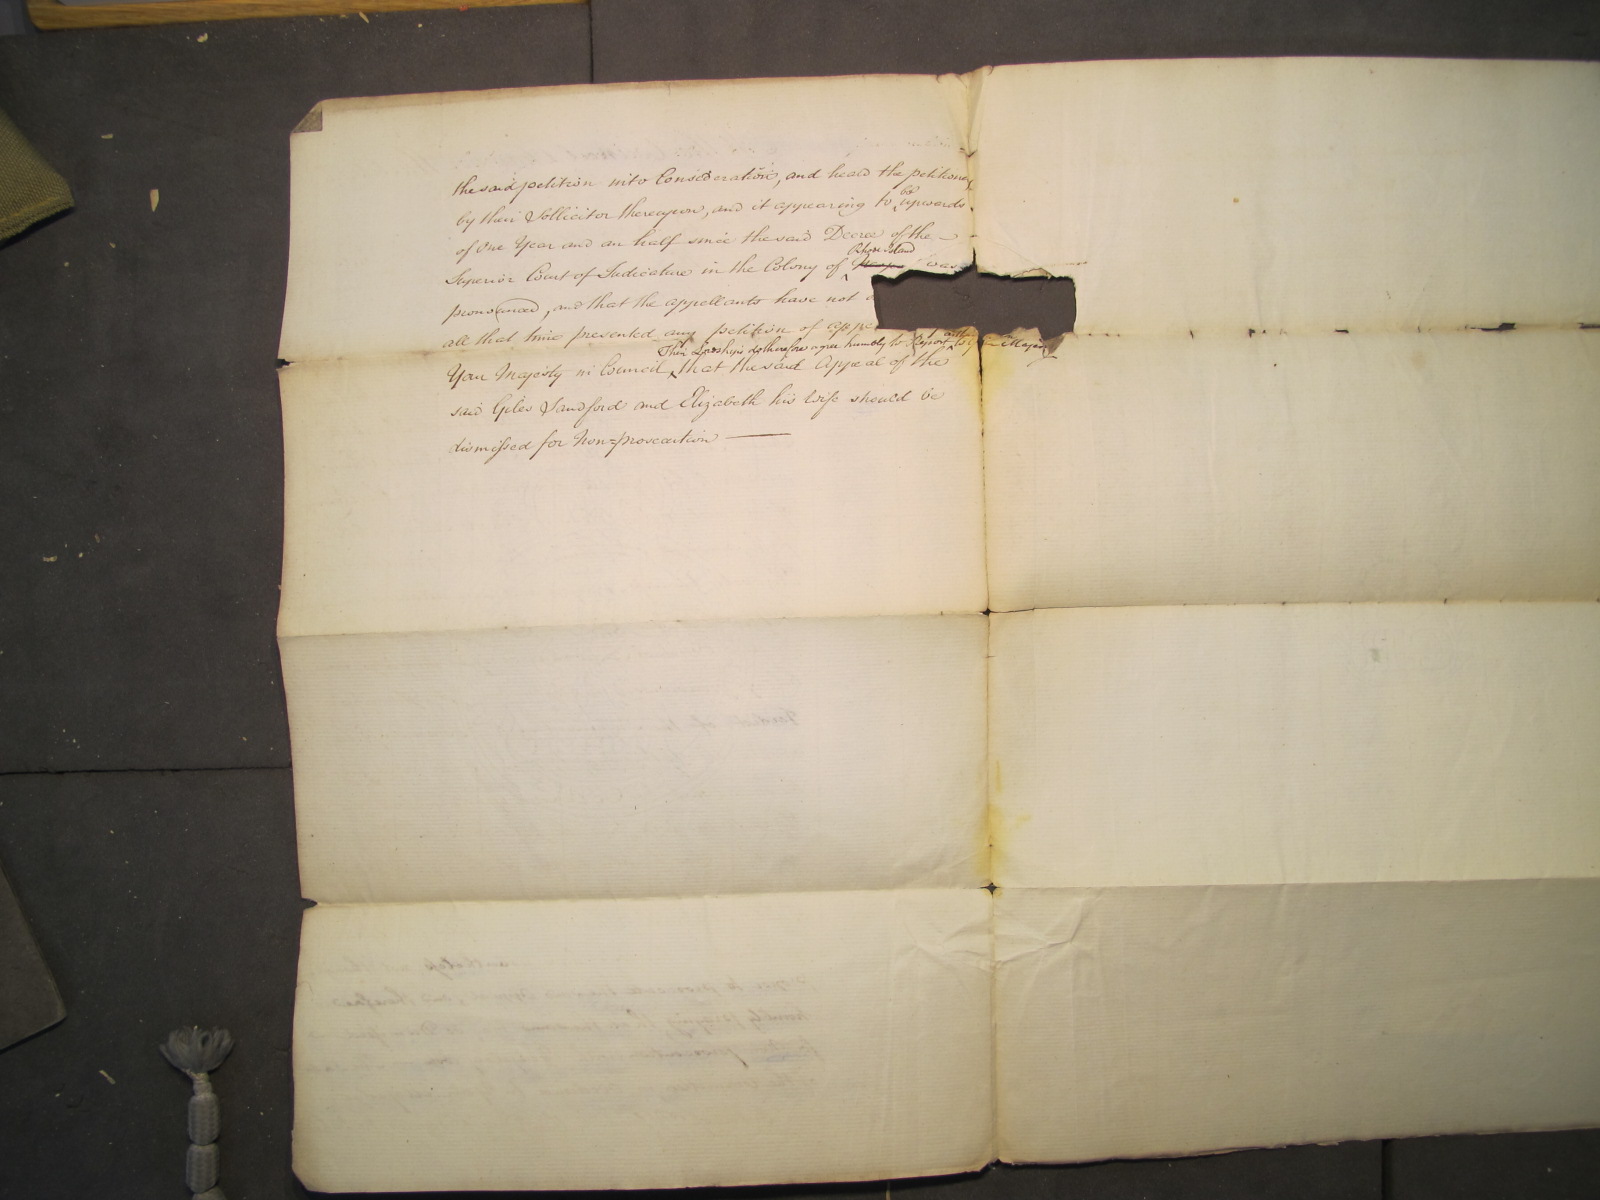 the said petition into Consideration, and heard the petitioners
by their Sollicitor thereupon, and it appearing to be upwards
of One Year and an half since the said Decree of the
Superior Court of Judicature in the Colony of Rhode Island was
pronounced, and that the appellants have not
all that time presented any petition of appe
Their Lordships do therefore agree humbly to Report as their to Your Majesty
Your Majesty in Council, that the said Appeal of the
said Giles Sandford and Elizabeth his Wife should be
dismissed for Non=prosecution